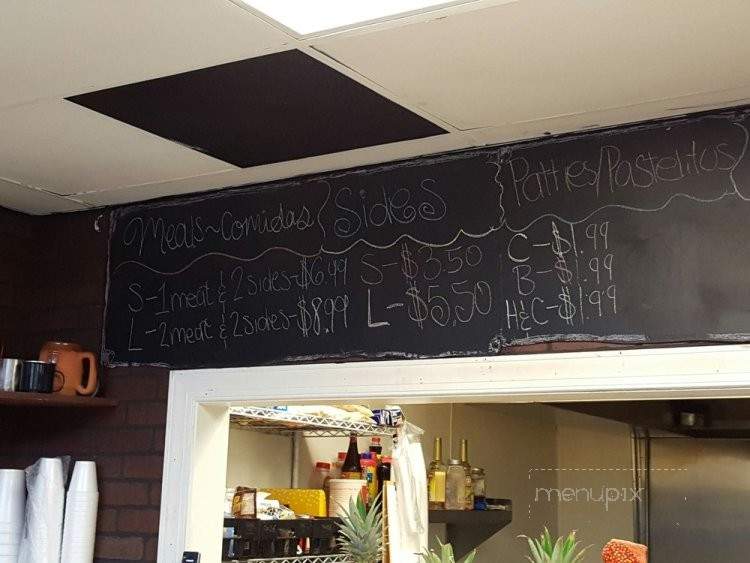 Meals~Comidas
S-1meat & 2 sides-$6.49
L-2meat & 2 sides-$8.99
Sides
S-$3.50
L-$5.50
Patties/Pastelitos
C-$1.99
B-$1.99
H&C-$1.99
menupix